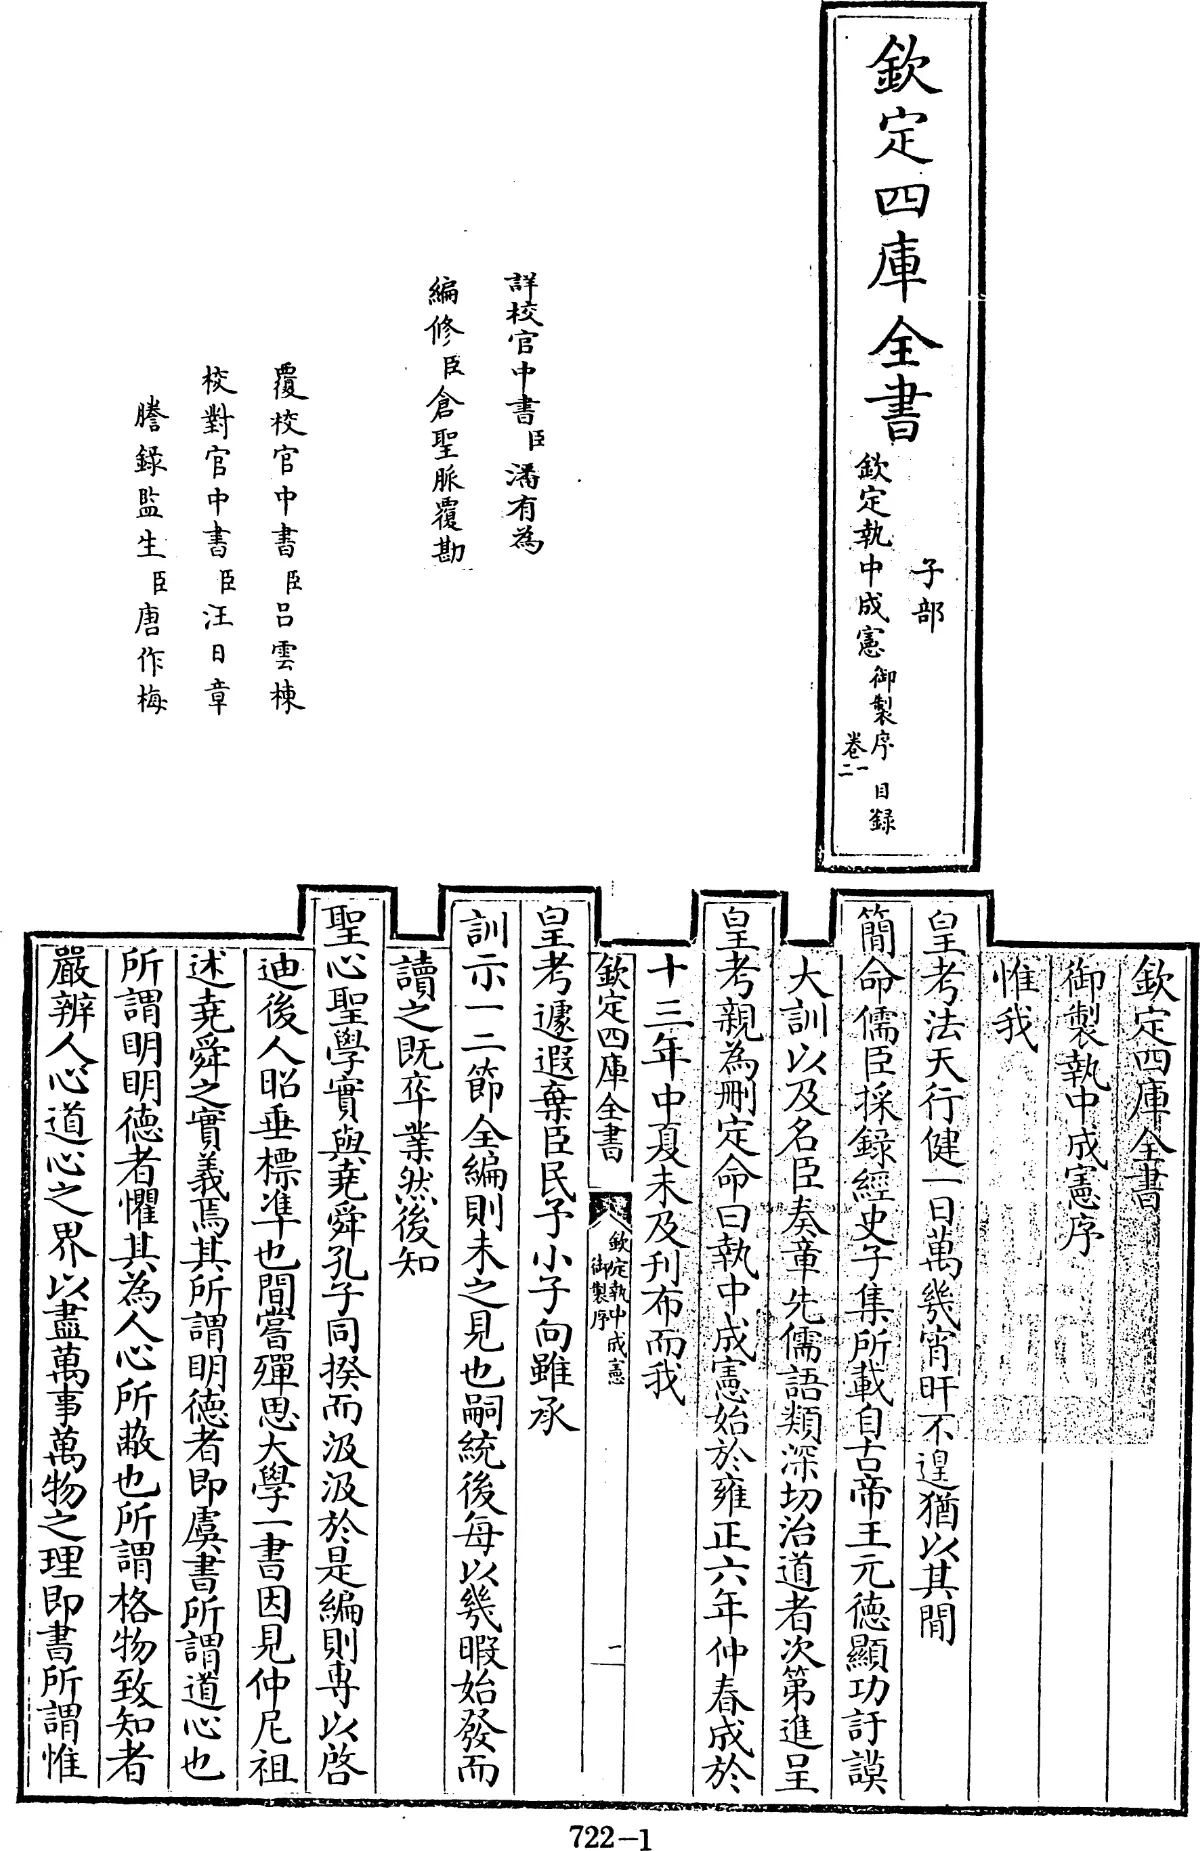 欽定四庫全書
子部
欽定執中成憲
御製序 目錄
卷一
二
詳校官中書臣潘有為
編修臣倉聖脈覆勘
覆校官中書臣呂雲棟
校對官中書臣汪日章
謄錄監生臣唐作梅
欽定四庫全書
御製執中成憲序
惟我
皇考法天行健一日萬幾宵旰不遑猶以其間
簡命儒臣採錄經史子集所載自古帝王元德顯功訏謨
大訓以及名臣奏章先儒語類深切治道者次第進呈
皇考親為刪定命曰執中成憲始於雍正六年仲春成於
十三年中夏未及刊布而我
欽定四庫全書
欽定執中成憲
御製序
一
皇考遽遐棄臣民予小子向雖承
訓示一二節全編則未之見也嗣統後每以幾暇始發而
讀之既卒業然後知
聖心聖學實與堯舜孔子同揆而汲汲於是編則專以啓
迪後人昭垂標準也間嘗殫思大學一書因見仲尼祖
述堯舜之實義焉其所謂明德者即虞書所謂道心也
所謂明明德者懼其為人心所蔽也所謂格物致知者
嚴辨人心道心之界以盡萬事萬物之理即書所謂惟
722-1